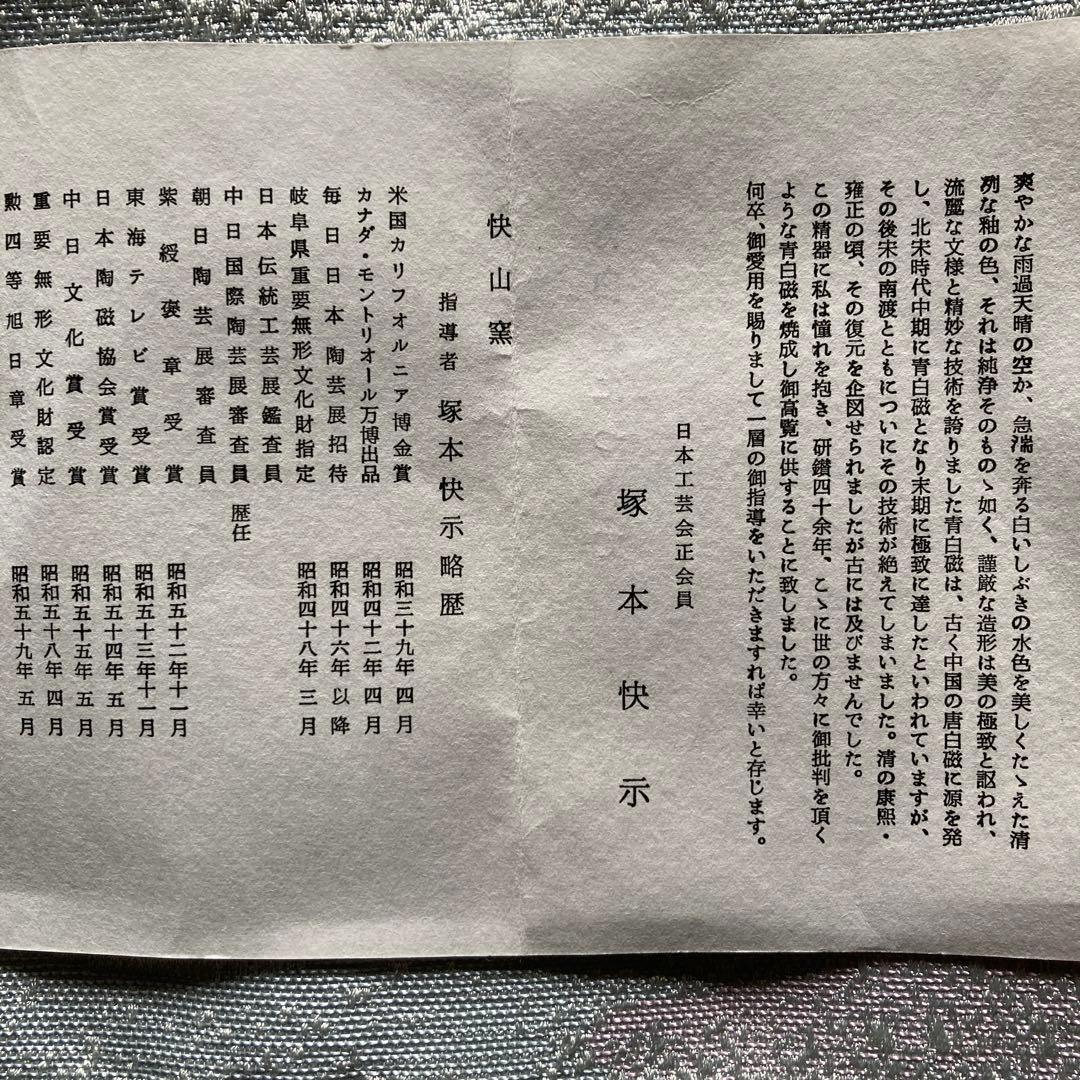 爽やかな雨過天晴の空か、急湍を奔る白いしぶきの水色を美しくたゝえた清
冽な釉の色、それは純浄そのものゝ如く、謹厳な造形は美の極致と謳われ、
流麗な文様と精妙な技術を誇りました青白磁は、古く中国の唐白磁に源を発
し、北宋時代中期に青白磁となり末期に極致に達したといわれていますが、
その後宋の南渡とともについにその技術が絶えてしまいました。清の康熙・
雍正の頃、その復元を企図せられましたが古には及びませんでした。
この精器に私は憧れを抱き、研鑽四十余年、こゝに世の方々に御批判を頂く
ような青白磁を焼成し御高覧に供することに致しました。
何卒、御愛用を賜りまして一層の御指導をいただきますれば幸いと存じます。
日本工芸会正会員
塚本快示
快山窯
指導者 塚本快示略歴
米国カリフオルニア博金賞 昭和三十九年四月
カナダ・モントリオール万博出品 昭和四十二年四月
毎日日本陶芸展招待 昭和四十六年以降
岐阜県重要無形文化財指定 昭和四十八年三月
日本伝統工芸展鑑査員
中日国際陶芸展審査員 歴任
朝日陶芸展審査員
紫綬褒章受賞 昭和五十二年十一月
東海テレビ賞受賞 昭和五十三年十一月
日本陶磁協会賞受賞 昭和五十四年五月
中日文化賞受賞 昭和五十五年五月
重要無形文化財認定 昭和五十八年四月
勲四等旭日章受賞 昭和五十九年五月